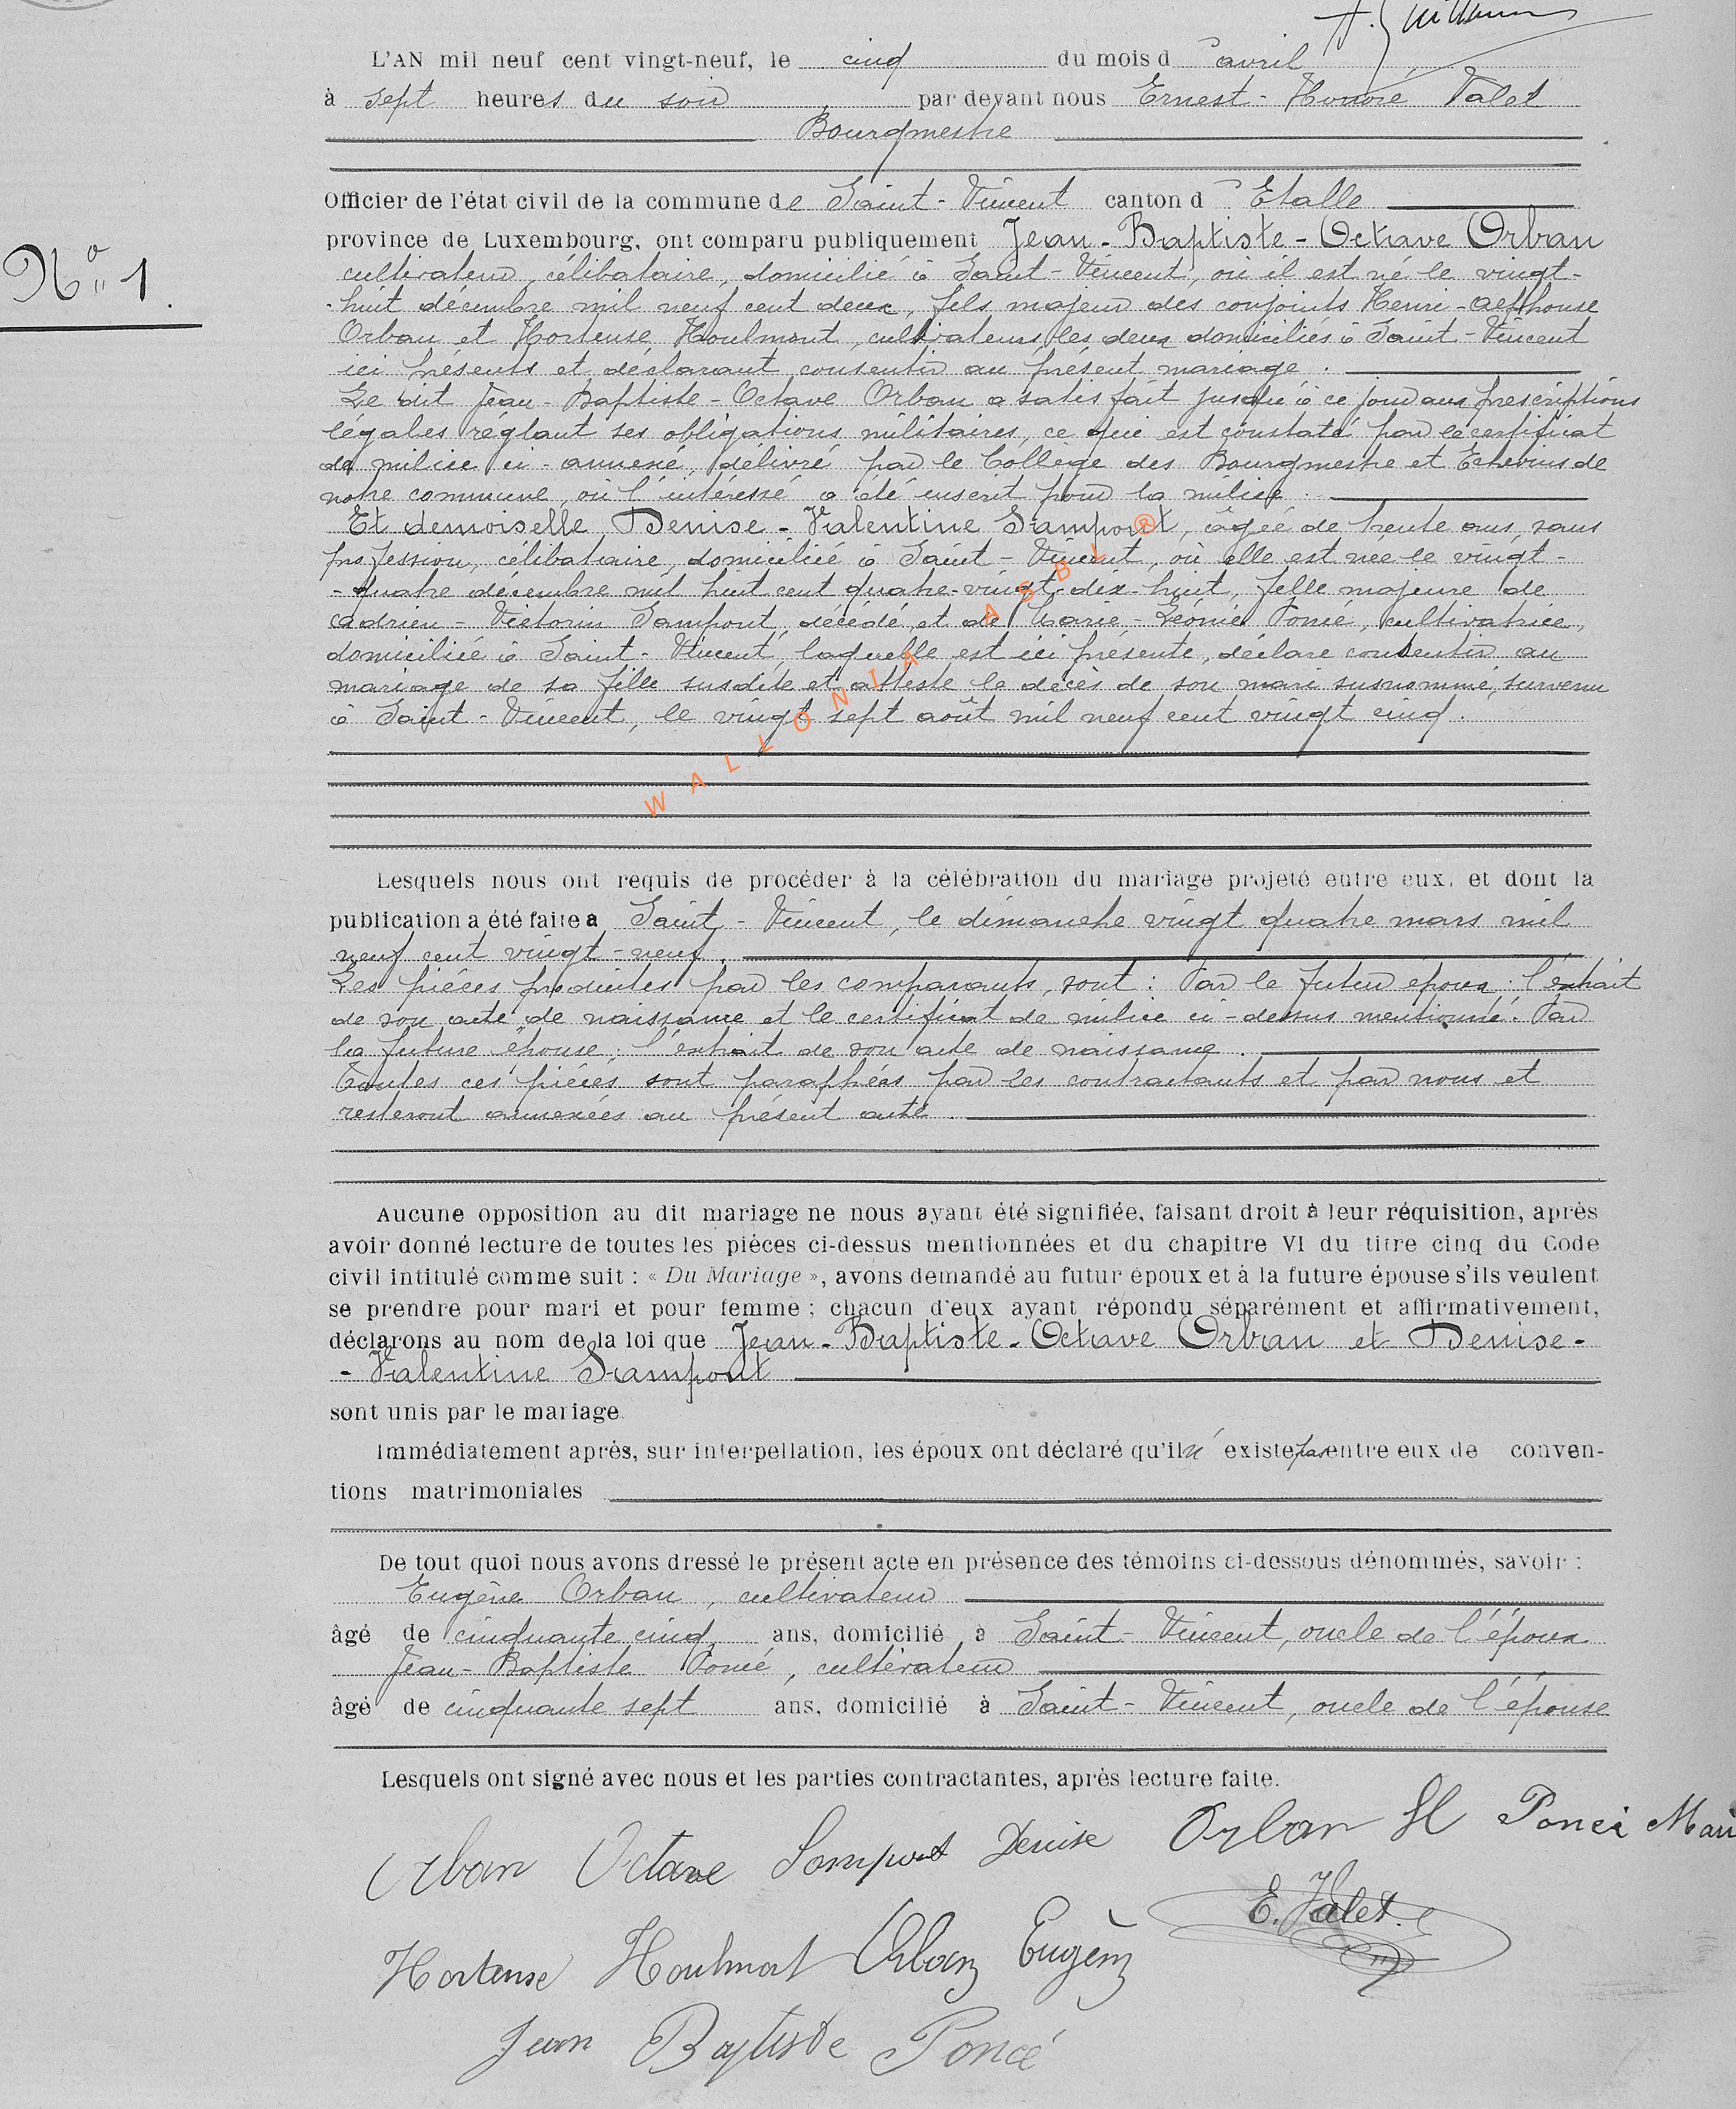 L'AN mil neuf cent vingt-neuf, le cinq du mois d'avril
à sept heures du soir par devant nous Ernest-Honoré Valet
Bourgmestre
Officier de l'état civil de la commune de Saint-Vincent canton d'Etalle
province de Luxembourg, ont comparu publiquement Jean-Baptiste-Octave Orban
N° 1.
cultivateur, célibataire, domicilié à Saint-Vincent, où il est né le vingt-
-huit décembre mil neuf cent deux, fils majeur des conjoints Henri-Alphonse
Orban et Hortense Houlmont, cultivateurs, les deux domiciliés à Saint-Vincent
ici présents et déclarant consentir au présent mariage.
Le dit Jean-Baptiste-Octave Orban a satisfait jusqu'à ce jour aux prescriptions
légales réglant ses obligations militaires, ce qui est constaté par le certificat
de milice ci-annexé, délivré par le Collège des Bourgmestre et Echevins de
notre commune, où l'intéressé a été inscrit pour la milice.
Et demoiselle Denise-Valentine Sampont, âgée de trente ans, sans
profession, célibataire, domiciliée à Saint-Vincent, où elle est née le vingt-
-quatre décembre mil huit cent quatre-vingt-dix-huit, fille majeure de
Adrien-Victorin Sampont, décédé, et de Marie-Léonie Poncé, cultivatrice,
domiciliée à Saint-Vincent, laquelle est ici présente, déclare consentir au
mariage de sa fille susdite et atteste le décès de son mari susnommé, survenu
à Saint-Vincent, le vingt sept août mil neuf cent vingt cinq.
WALLONIA ASBL ®
Lesquels nous ont requis de procéder à la célébration du mariage projeté entre eux, et dont la
publication a été faite a Saint-Vincent, le dimanche vingt quatre mars mil
neuf cent vingt-neuf.
Les pièces produites par les comparants, sont: Par le futur époux: l'extrait
de son acte de naissance et le certificat de milice ci-dessus mentionné. Par
la future épouse: l'extrait de son acte de naissance.
Toutes ces pièces sont paraphées par les contractants et par nous et
resteront annexées au présent acte.
Aucune opposition au dit mariage ne nous ayant été signifiée, faisant droit à leur réquisition, après
avoir donné lecture de toutes les pièces ci-dessus mentionnées et du chapitre VI du titre cinq du Code
civil intitulé comme suit : « Du Mariage », avons demandé au futur époux et à la future épouse s'ils veulent
se prendre pour mari et pour femme ; chacun d'eux ayant répondu séparément et affirmativement,
déclarons au nom de la loi que Jean-Baptiste-Octave Orban et Denise-
-Valentine Sampont
sont unis par le mariage
Immédiatement après, sur interpellation, les époux ont déclaré qu'il n'existe pas entre eux de conven-
tions matrimoniales
De tout quoi nous avons dressé le présent acte en présence des témoins ci-dessous dénommés, savoir :
Eugène Orban, cultivateur
âgé de cinquante cinq ans, domicilié à Saint-Vincent, oncle de l'époux
Jean-Baptiste Poncé, cultivateur
âgé de cinquante sept ans, domicilié à Saint-Vincent, oncle de l'épouse
Lesquels ont signé avec nous et les parties contractantes, après lecture faite.
Orban Octave Sampont Denise Orban H Poncé Mari
E. Valet.
Hortense Houlmont Orban Eugène
Jean Baptiste Poncé